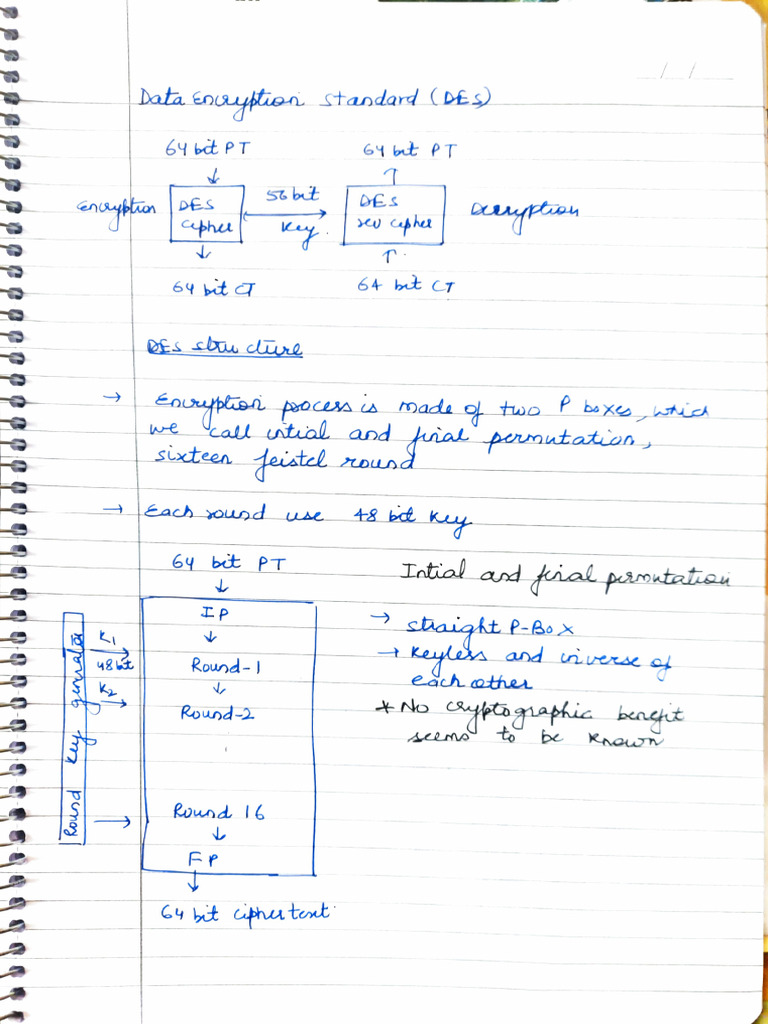 Data Encryption Standard (DES)
64 bit PT 64 bit PT
Encryption DES cipher 56 bit Key. DES rev cipher Decryption
64 bit CT 64 bit CT
DES structure
→ Encryption process is made of two P boxes, which
we call intial and final permutation,
sixteen feistel round
→ Each round use 48 bit key
64 bit PT
IP
Round-1
Round-2
Round 16
FP
64 bit ciphertext
Round key generator
K1
48 bit
K2
Intial and final permutation
→ straight P-Box
→ Keyless and inverse of
each other
* No cryptographic benefit
seems to be known